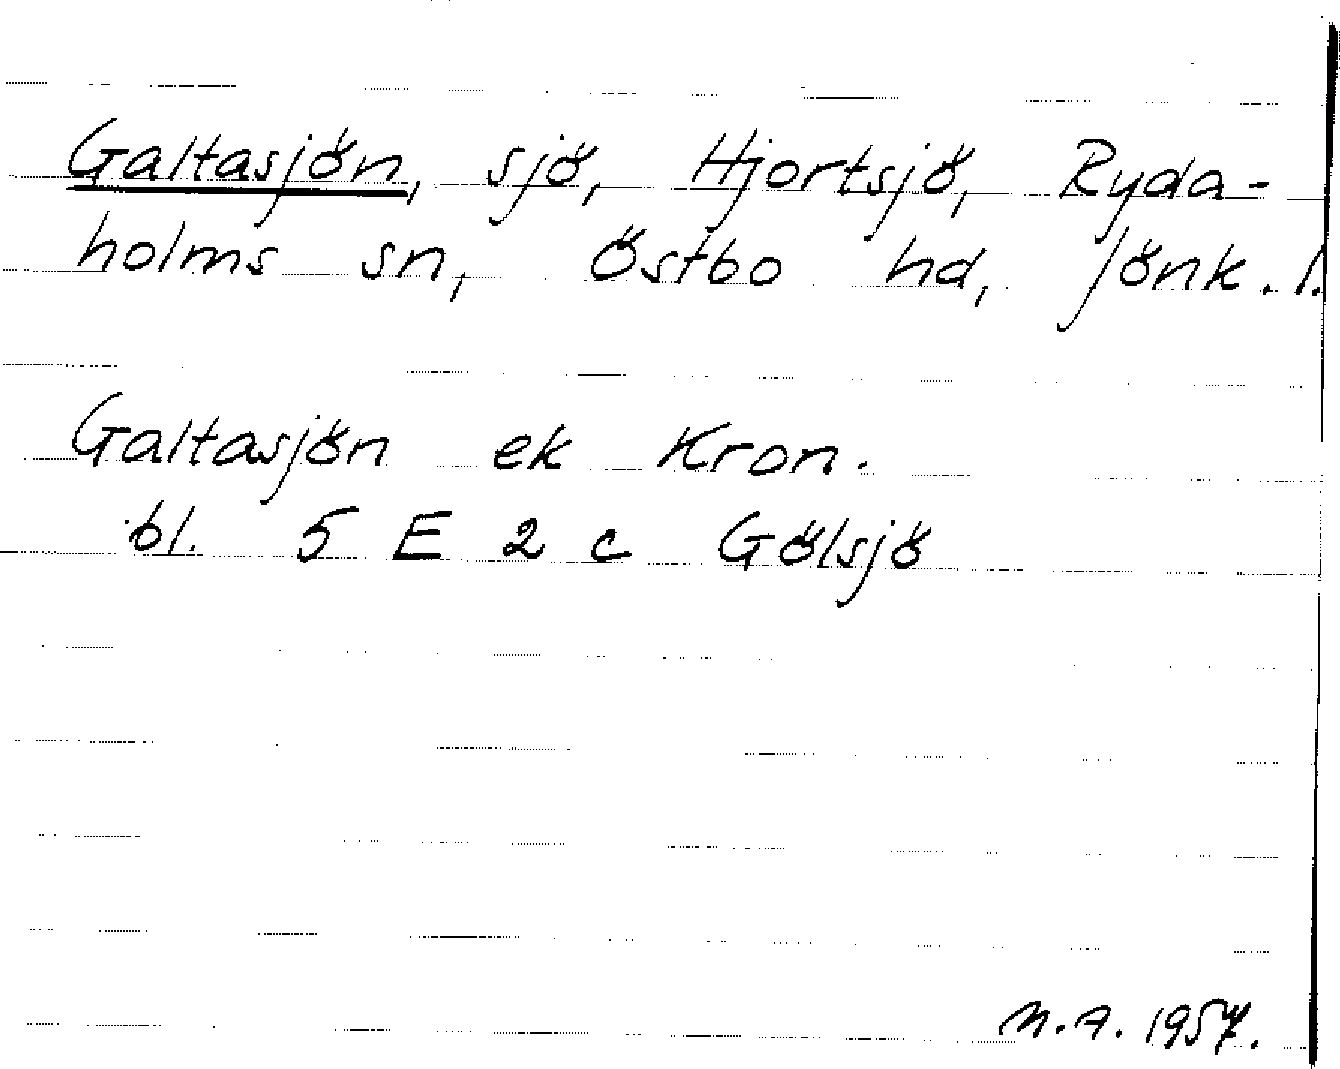 Galtasjön, sjö, Hjortsjö, Ryda-
holms sn, Östbo hd, Jönk. l.
Galtasjön ek Kron.
bl. 5 E 2 c Gölsjö
N.A. 1957.